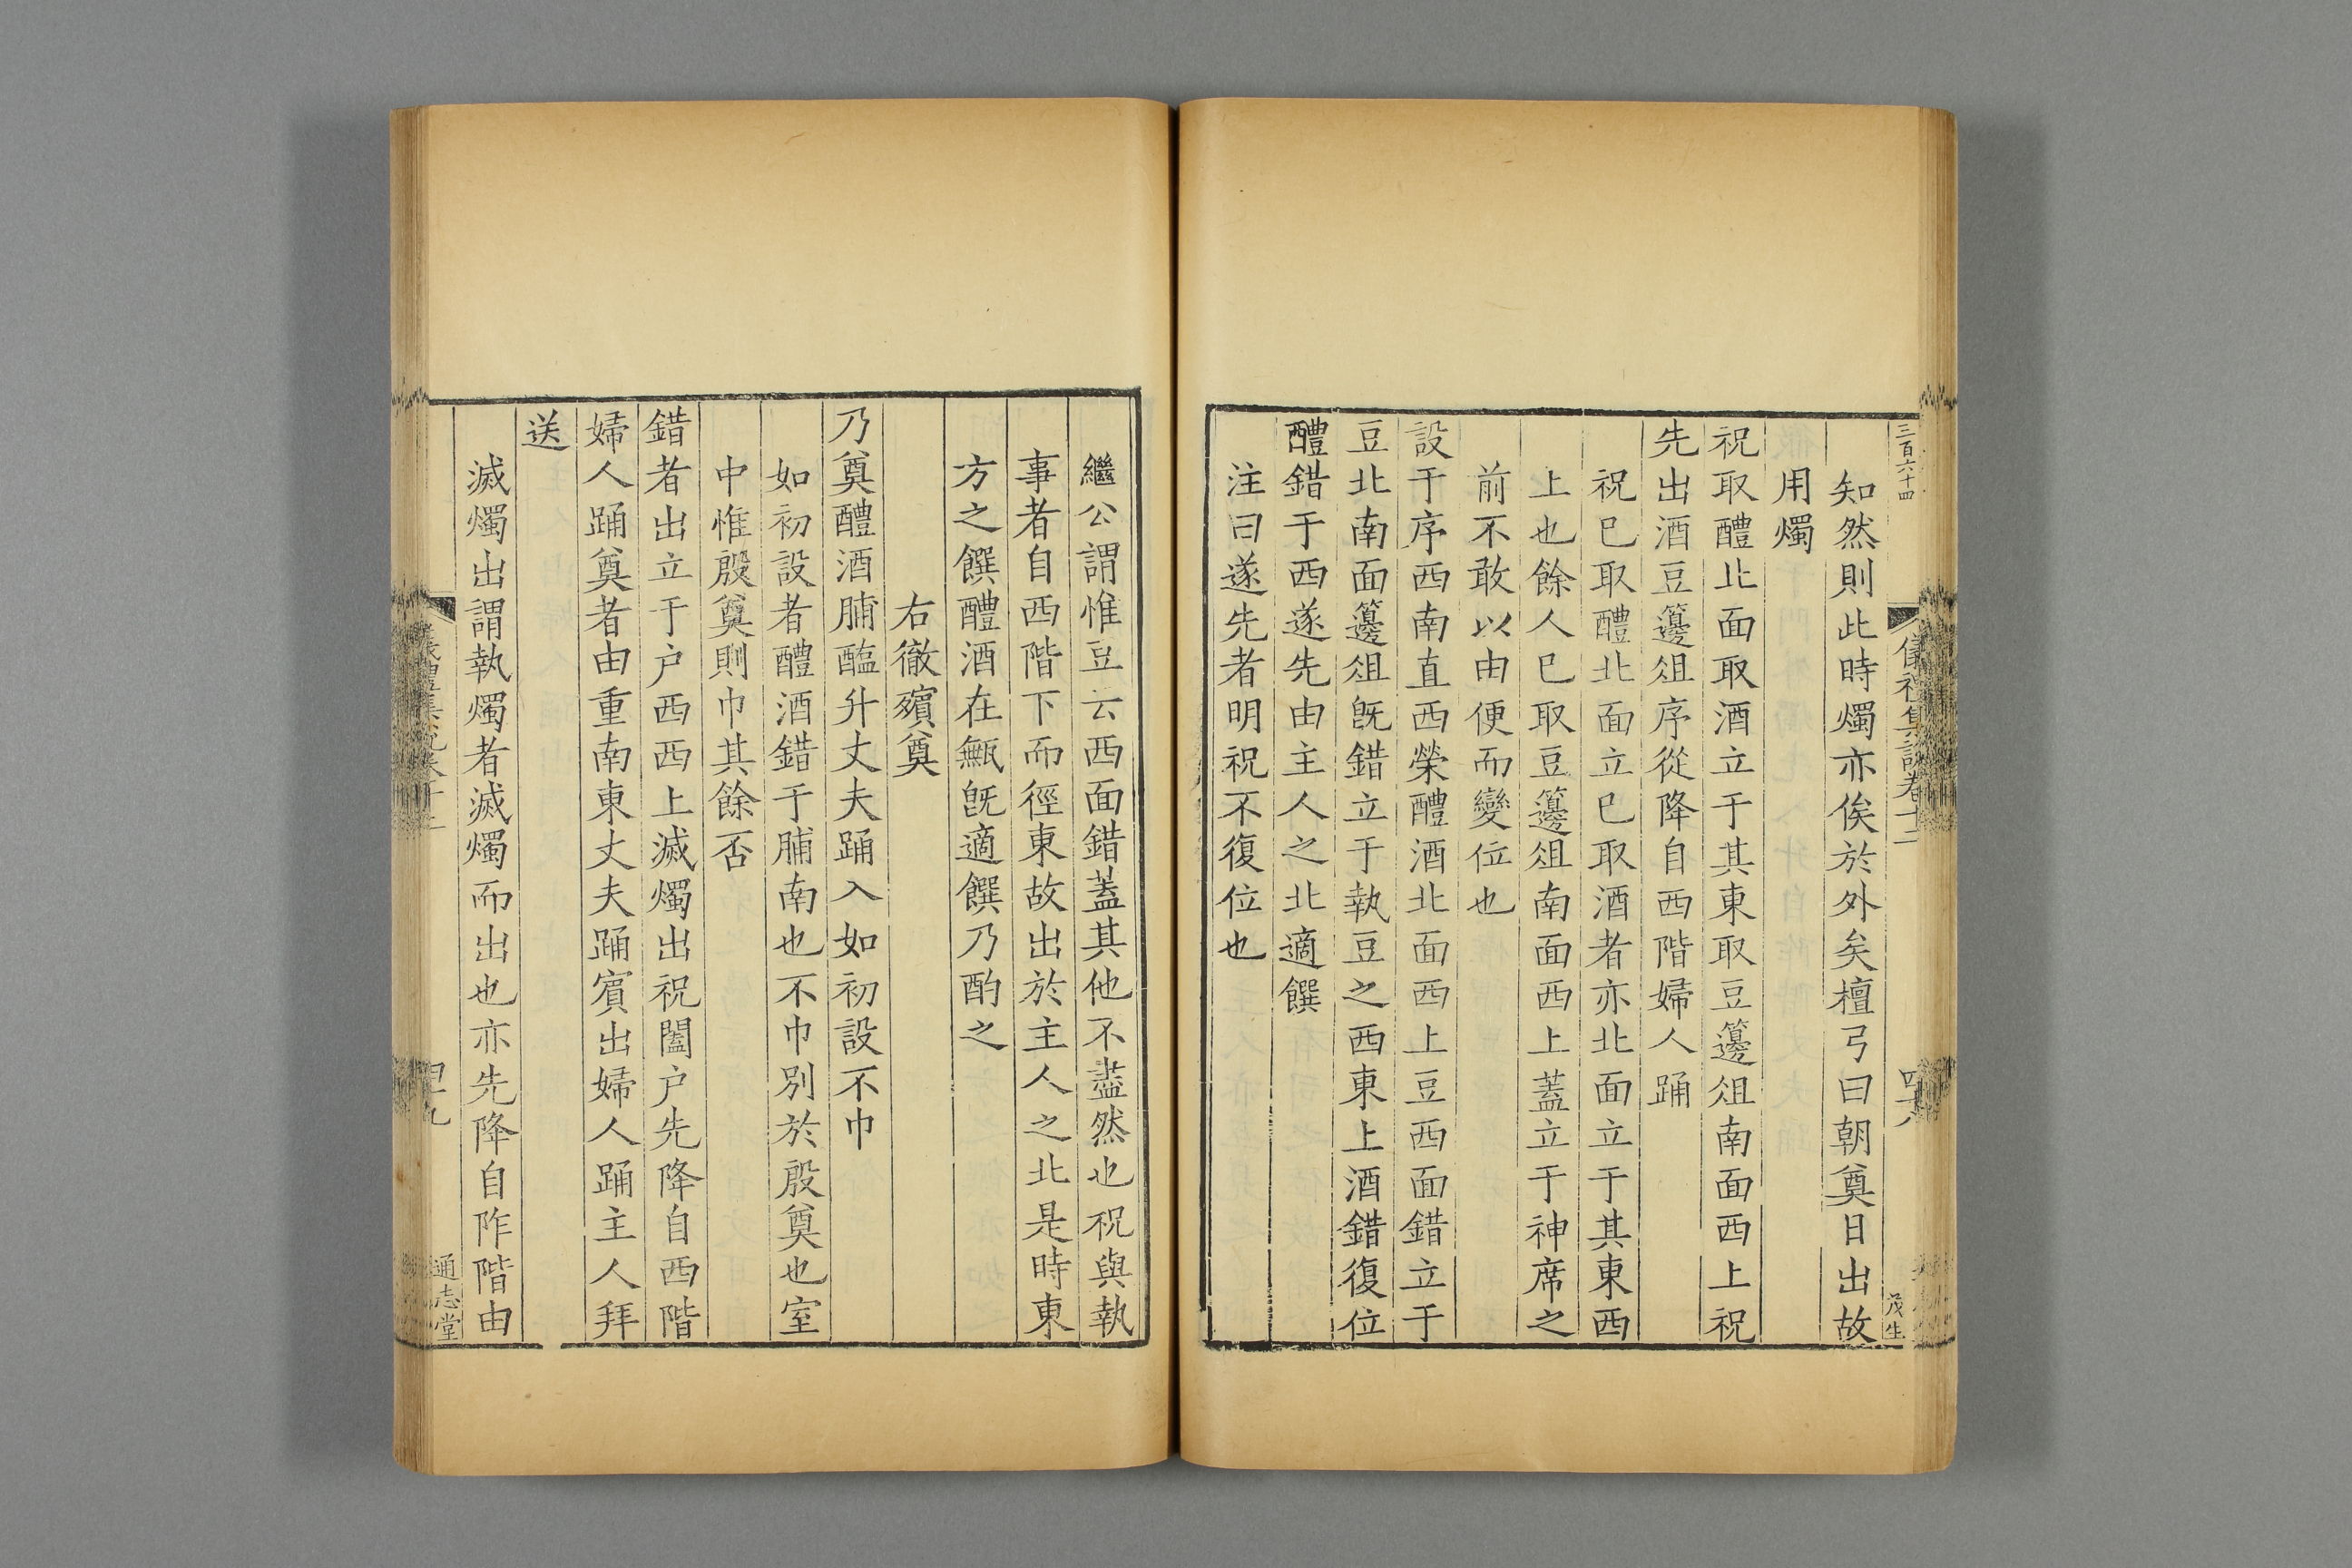 三百六十四
儀禮集說卷十二
茂生
知然則此時燭亦俟於外矣檀弓曰朝奠日出故
用燭
祝取醴北面取酒立于其東取豆籩俎南面西上祝
先出酒豆籩俎序從降自西階婦人踊
祝巳取醴北面立巳取酒者亦北面立于其東西
上也餘人巳取豆籩俎南面西上蓋立于神席之
前不敢以由便而變位也
設于序西南直西榮醴酒北面西上豆西面錯立于
豆北南面籩俎旣錯立于執豆之西東上酒錯復位
醴錯于西遂先由主人之北適饌
注曰遂先者明祝不復位也
繼公謂惟豆云西面錯蓋其他不盡然也祝與執
事者自西階下而徑東故出於主人之北是時東
方之饌醴酒在甒旣適饌乃酌之
右徹殯奠
乃奠醴酒脯醢升丈夫踊入如初設不巾
如初設者醴酒錯于脯南也不巾別於殷奠也室
中惟殷奠則巾其餘否
錯者出立于户西西上滅燭出祝闔户先降自西階
婦人踊奠者由重南東丈夫踊賓出婦人踊主人拜
送
滅燭出謂執燭者滅燭而出也亦先降自阼階由
通志堂